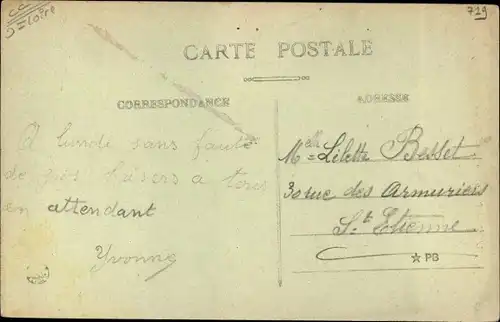 S=Loire
719
CARTE POSTALE
CORRESPONDANCE
ADRESSE
A lundi sans faute
de gros baisers a tous
en attendant
Yvonne
Melle Lilette Besset
30 rue des Armuriers
St Etienne
☆ PB